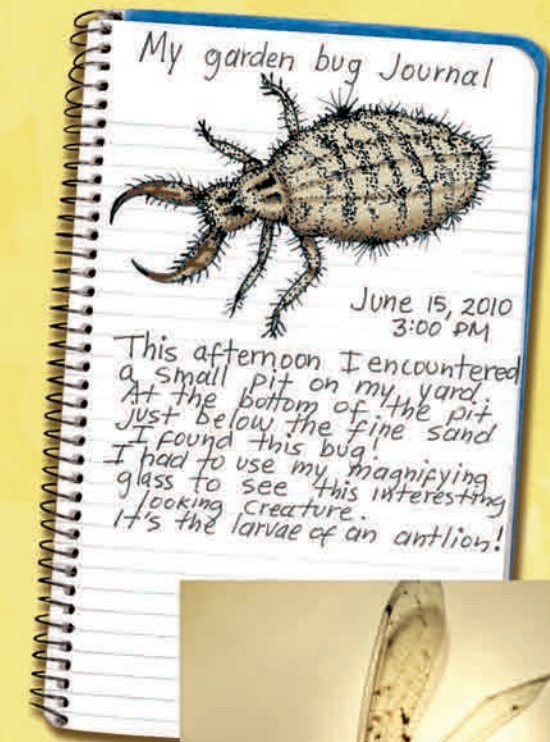 My garden bug Journal
June 15, 2010
3:00 PM
This afternoon I encountered
a small pit on my yard.
At the bottom of the pit
just below the fine sand
I found this bug!
I had to use my magnifying
glass to see this interesting
looking creature.
It's the larvae of an antlion!